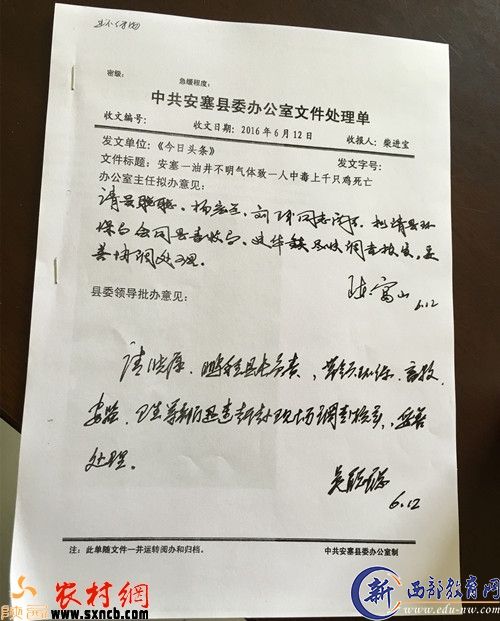 密级：
急缓程度：
中共安塞县委办公室文件处理单
收文编号：
收文日期：2016年6月12日
收报人：柴进宝
发文单位：《今日头条》
发文字号：
文件标题：安塞一油井不明气体致一人中毒上千只鸡死亡
办公室主任拟办意见：
请吴聪聪、杨宏兰、
同志阅示。拟请县环
保局会同县畜牧局、
调查核实，妥
善协调处理。
6.12
县委领导批办意见：
请晓原、
县长负责，带领环保、畜牧、
安监、卫生等部门迅速赶赴现场调查核实，妥善
处理。
吴聪聪
6.12
注：此单随文件一并运转阅办和归档。
中共安塞县委办公室制
农村網
www.sxncb.com
陕西
新
西部教育网
www.edu-nw.com